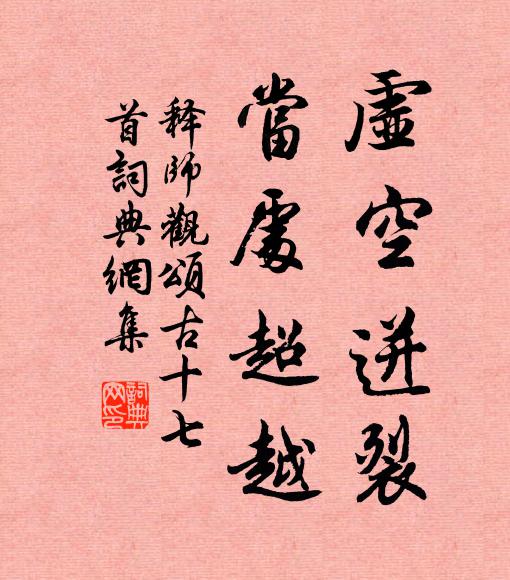 虛空迸裂
當處超越
释師觀頌古十七
首詞典網集
詞典網印